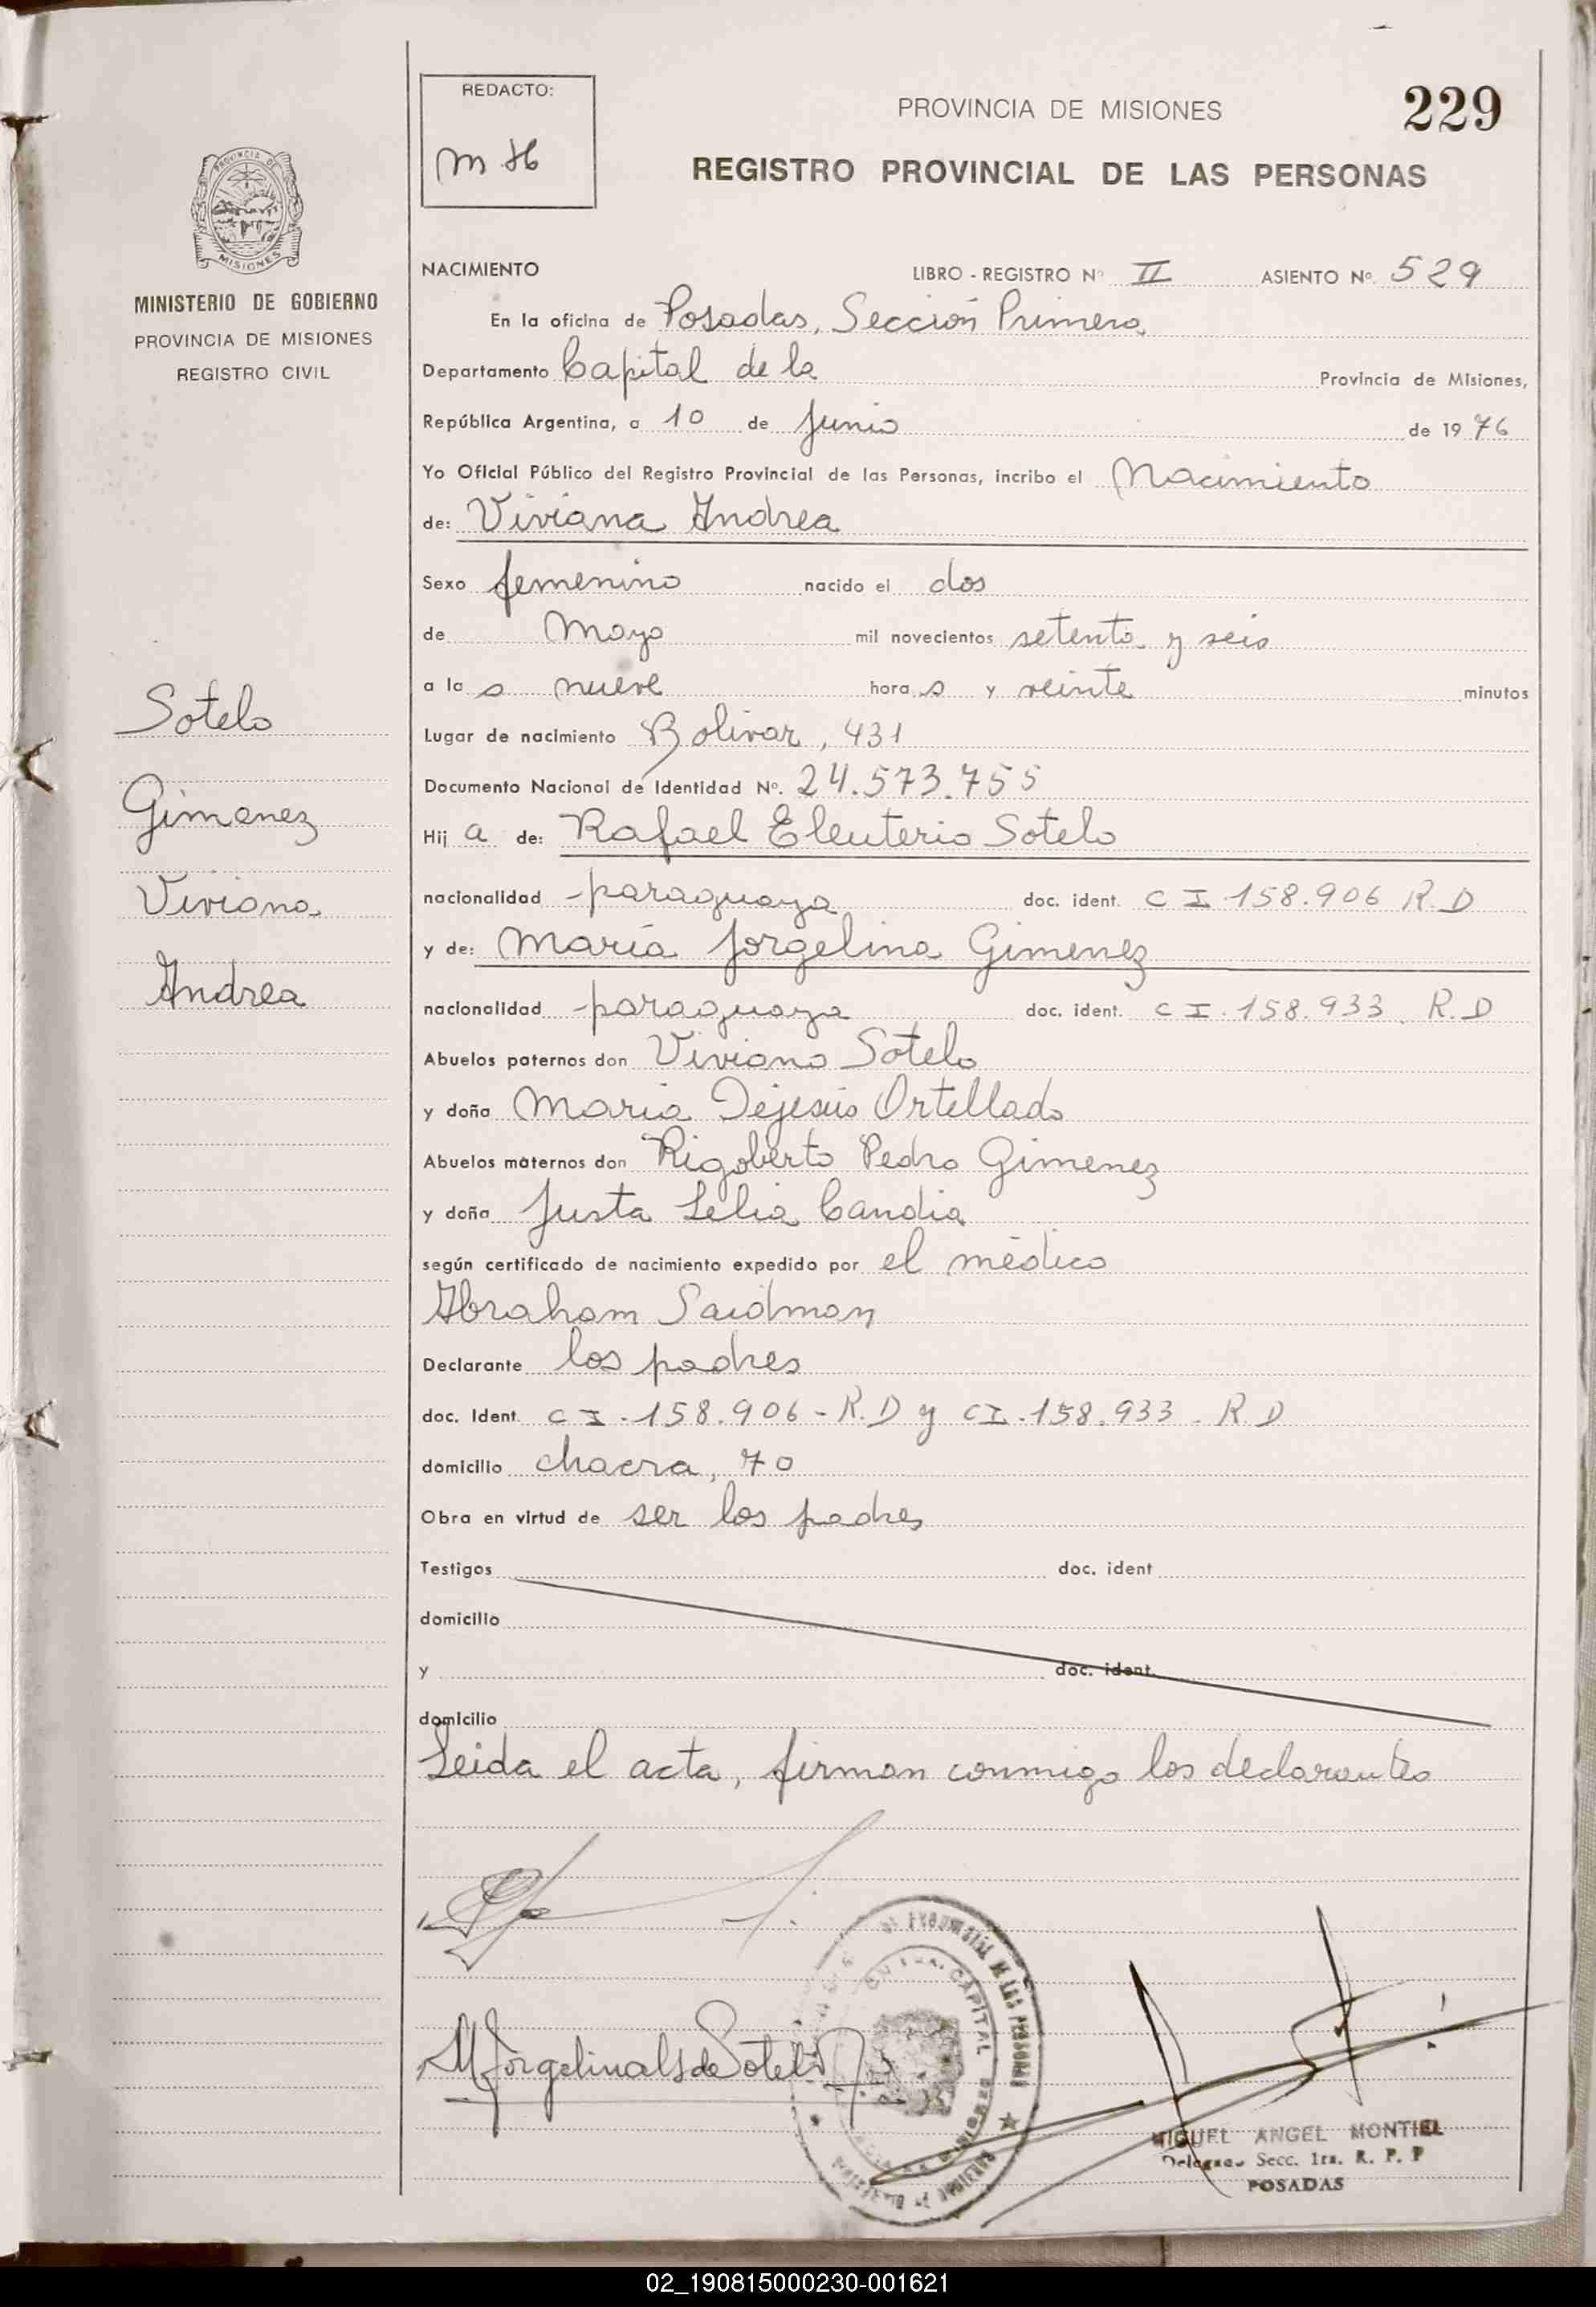 REDACTO:
m H
PROVINCIA DE MISIONES
229
REGISTRO PROVINCIAL DE LAS PERSONAS
PROVINCIA DE
MISIONES
MINISTERIO DE GOBIERNO
PROVINCIA DE MISIONES
REGISTRO CIVIL
NACIMIENTO LIBRO - REGISTRO Nº II ASIENTO Nº. 529
En la oficina de Posadas, Sección Primera
Departamento Capital de la Provincia de Misiones,
República Argentina, a 10 de Junio de 1976
Yo Oficial Público del Registro Provincial de las Personas, incribo el Nacimiento
de: Viviana Andrea
Sexo femenino nacido el dos
de Mayo mil novecientos setenta y seis
a la s nueve hora s y veinte minutos
Lugar de nacimiento Bolivar, 431
Documento Nacional de Identidad Nº. 24.573.755
Hij a de: Rafael Eleuterio Sotelo
nacionalidad paraguaya doc. ident. C I 158.906 R.D
y de: María Jorgelina Gimenez
nacionalidad paraguaya doc. ident. C I. 158.933. R.D
Abuelos paternos don Viviano Sotelo
y doña Maria Dejesús Ortellado
Abuelos maternos don Rigoberto Pedro Gimenez
y doña Justa Lelia Candia
según certificado de nacimiento expedido por el médico
Abraham Saidman
Declarante los padres
doc. Ident. C I. 158.906 - R.D y CI. 158.933 - R D
domicilio chacra, 70
Obra en virtud de ser los padres
Testigos doc. ident
domicilio
y doc. ident.
domicilio
Leida el acta, firman conmigo los declarantes
Sotelo
Gimenez
Viviana
Andrea
CAPITAL
MIGUEL ANGEL MONTIEL
Secc. 1ra. R. P. P
POSADAS
02_190815000230-001621